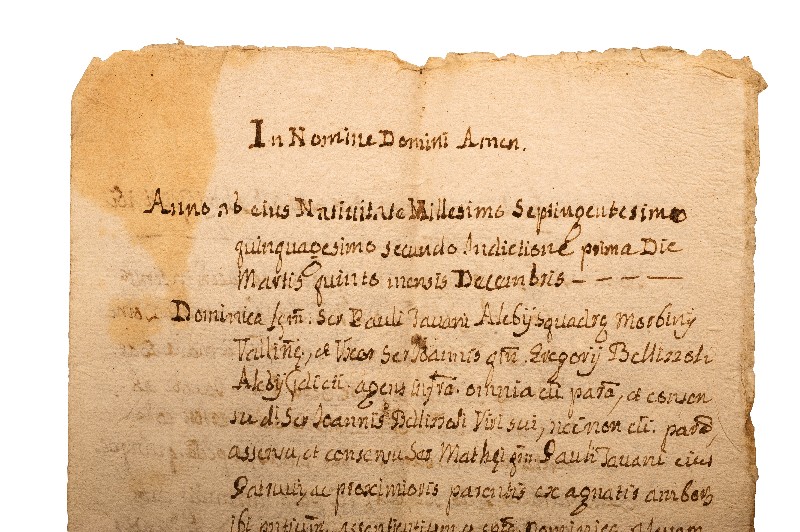 In Nomine Domini Amen.
Anno ab eius Natiuitate Millesimo Septingentesimo
quinquagesimo secundo Indictione prima Die
Martis quinto mensis Decembris - - - -
Dominica Ser Pauli Tavani Alebij Squadrę Morbinij
et Uxor Ser Ioannis qm̃. Gregorij Bellinoli
Alebij agens infra omnia cũ. et consen
su di Ser Ioannis Bellinoli Viri sui, nec non cũ.
assensu, et consensu Ser Mathęi qm̃. Pauli Tavani eius
Patrui, ac proximioris parentis ex agnatis
Dominica